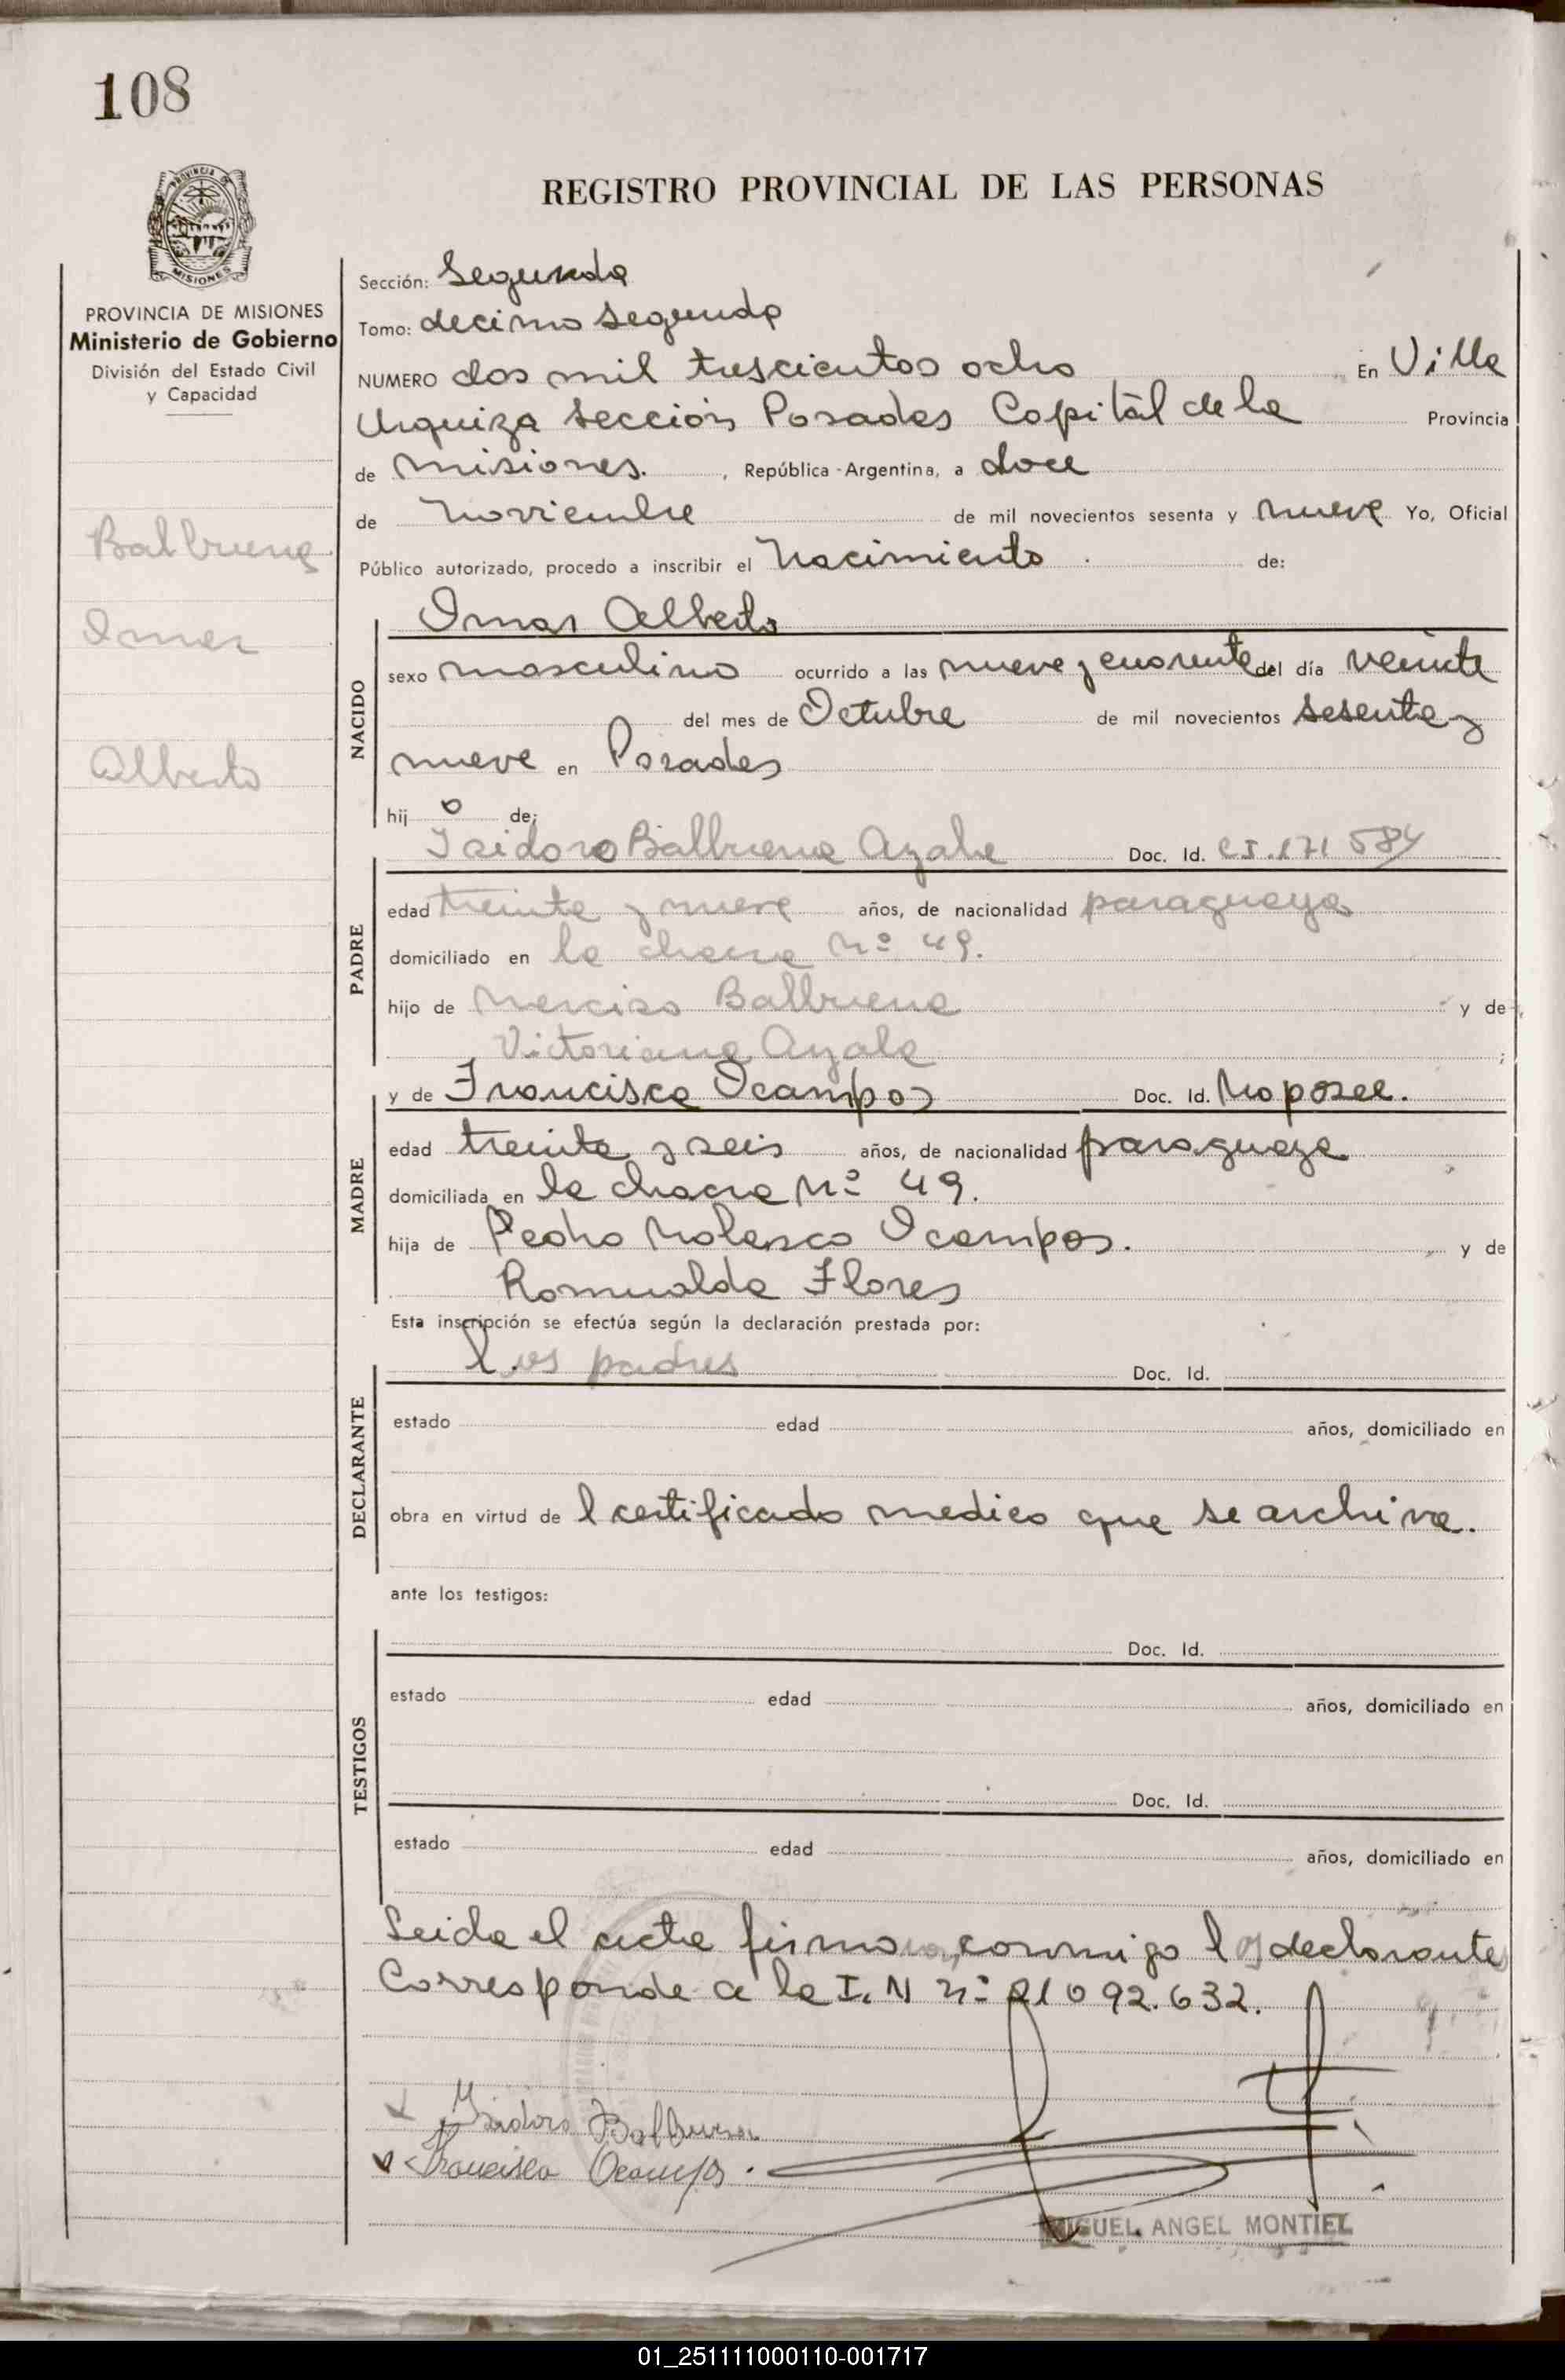 108
REGISTRO PROVINCIAL DE LAS PERSONAS
PROVINCIA DE MISIONES
Ministerio de Gobierno
División del Estado Civil
y Capacidad
Balbuena
Omar
Alberto
Sección: Segunda
Tomo: decimo segundo
NUMERO dos mil trescientos ocho En Villa
Urquiza sección Posadas Capital de la Provincia
de Misiones. , República Argentina, a doce
de Noviembre de mil novecientos sesenta y nueve Yo, Oficial
Público autorizado, procedo a inscribir el Nacimiento de:
NACIDO
Omar Alberto
sexo masculino ocurrido a las nueve y cuarenta del día veinte
del mes de Octubre de mil novecientos sesenta y
nueve en Posadas
hij o de;
PADRE
Isidoro Balbuena Ayala Doc. Id. CI.171 584
edad treinta y nueve años, de nacionalidad paraguaya
domiciliado en la chacra Nº 49.
hijo de Narciso Balbuena y de
Victoriana Ayala ;
MADRE
y de Francisca Ocampos Doc. Id. No posee.
edad treinta y seis años, de nacionalidad paraguaya
domiciliada en la chacra Nº 49.
hija de Pedro Nolasco Ocampos. y de
Romualda Flores
Esta inscripción se efectúa según la declaración prestada por:
DECLARANTE
los padres Doc. Id.
estado edad años, domiciliado en
obra en virtud de l certificado medico que se archiva.
ante los testigos:
TESTIGOS
Doc. Id.
estado edad años, domiciliado en
Doc. Id.
estado edad años, domiciliado en
Leida el acta firman conmigo los declarantes
Corresponde a la I. N nº 21 092.632.
Isidoro Balbuena
Francisca Ocampos.
MIGUEL ANGEL MONTIEL
01_251111000110-001717